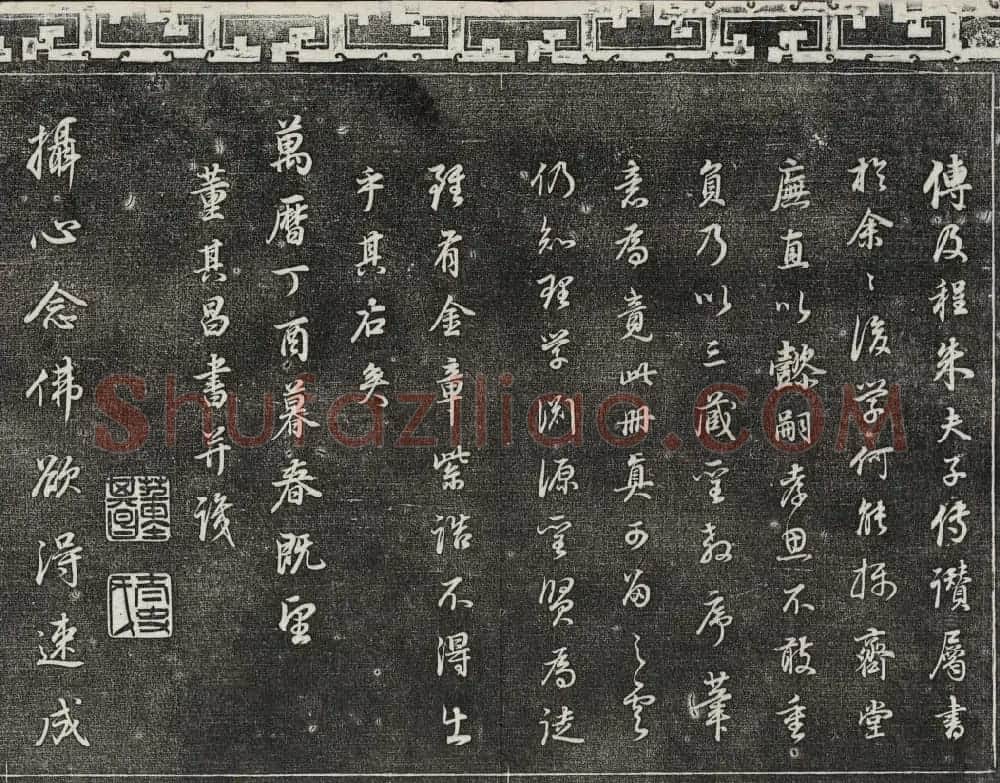 傳及程朱夫子傳讚屬書
於余〻後學何能揚齋堂
廡直以懿嗣孝思不敢重
負乃以三藏聖教序筆
意為竟此册真可留之雲
仍知理學淵源聖賢為徒
雖有金章紫誥不得出
乎其右矣
萬曆丁酉暮春既望
董其昌書并識
太史氏
攝心念佛欲得速成
Shufaziliao.COM